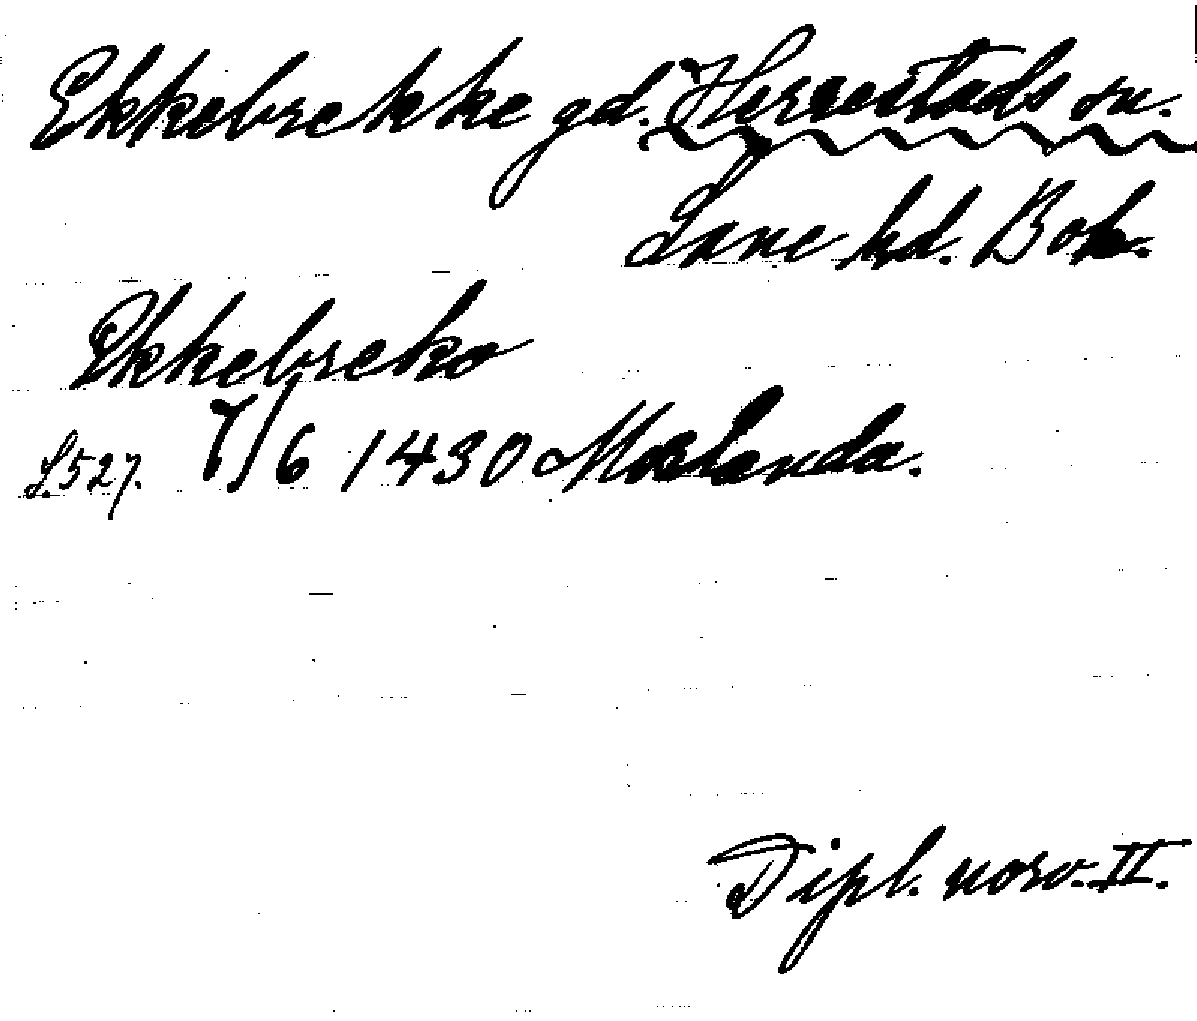 Ekkebrekke gd. Herrestads sn.
Lane hd. Boh.
Ekkebreko
S.527. 7/6 1430 Morlanda.
Dipl. norv. II.